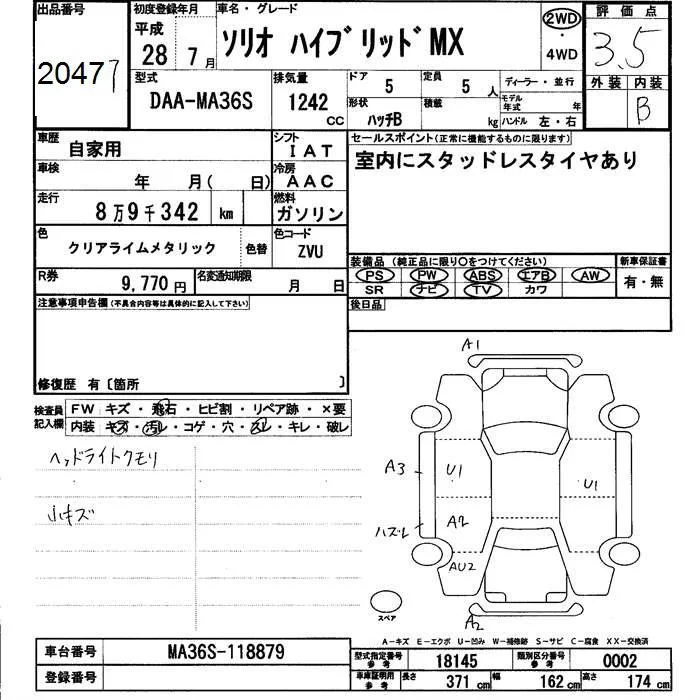 出品番号 初度登録年月 車名・グレード 評価点
20477 平成 28 7月 ソリオ ハイブリッドMX 2WD・4WD 3.5
型式 排気量 ドア 定員 ディーラー・並行 外装 内装
DAA-MA36S 1242 CC 5 5人 モデル年式 年 B
形状 ハッチB 積載 kg ハンドル 左・右
車歴 自家用 シフト IAT セールスポイント(正常に機能するものに限ります)
車検 年 月( 日) 冷房 AAC 室内にスタッドレスタイヤあり
走行 8万9千342 km 燃料 ガソリン
色 クリアライムメタリック 色替 色コード ZVU
装備品 (純正品に限り〇をつけてください) 新車保証書
R券 9,770円 名変通知期限 月 日 PS PW ABS エアB AW 有・無
SR ナビ TV カワ
注意事項申告欄(不具合内容等は具体的に記入して下さい) 後日品
修復歴 有〔箇所 〕
検査員記入欄 FW キズ・飛石・ヒビ割・リペア跡・×要
内装 キズ・汚レ・コゲ・穴・スレ・キレ・破レ
ヘッドライトクモリ
小キズ
A1
A3 U1 U1
ハズレ A2
AU2
スペア A2
A-キズ E-エクボ U-凹み W-補修跡 S-サビ C-腐食 XX-交換済
車台番号 MA36S-118879 型式指定番号 参考 18145 類別区分番号 参考 0002
登録番号 車庫証明用 参考 長さ 371cm 幅 162cm 高さ 174cm